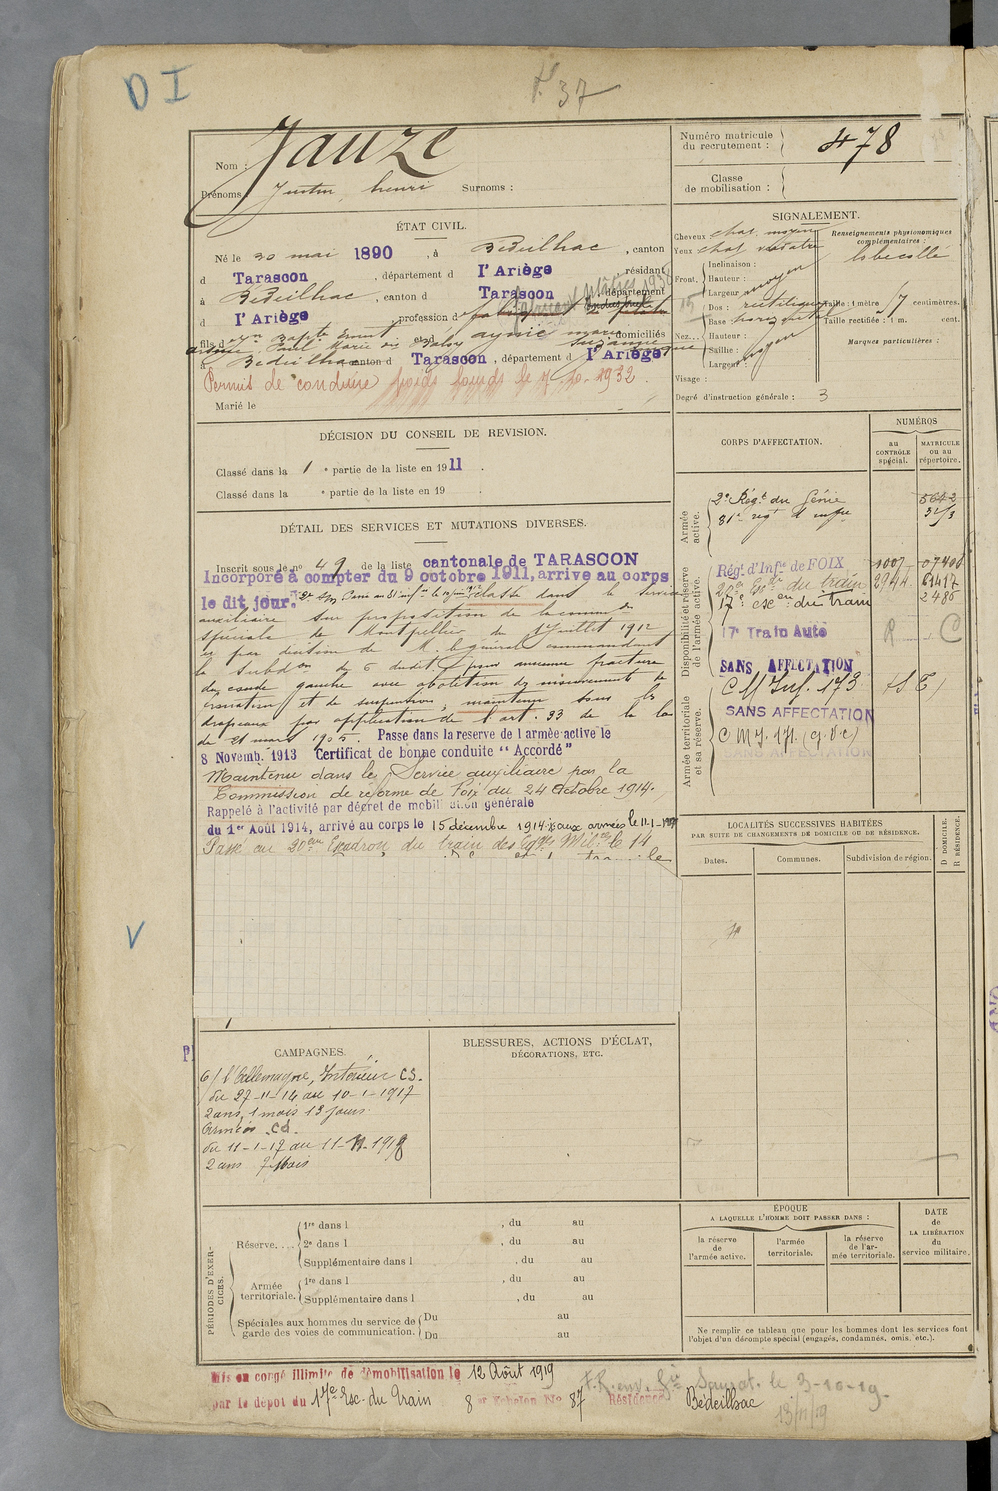 D I
37
Nom : Jauze
Prénoms : Justin henri Surnoms :
Numéro matricule du recrutement : 478
Classe de mobilisation :
ÉTAT CIVIL.
Né le 30 mai 1890, à Bedeilhac, canton
d Tarascon, département d l'Ariège, résidant
à Bedeilhac, canton d Tarascon, département
d l'Ariège, profession d
fils d et d domiciliés
à Bedeilhac canton d Tarascon, département d l'Ariège
Permis de conduire poids lourds le 7. 10. 1932.
Marié le
SIGNALEMENT.
Cheveux chat. moyen
Yeux
Renseignements physionomiques complémentaires :
Front.
Inclinaison :
Hauteur :
Largeur : moyen
Nez.
Dos : rectiligne
Base : horizontal
Hauteur :
Saillie :
Largeur : moyen
Taille : 1 mètre centimètres.
Taille rectifiée : 1 m. cent.
Marques particulières :
Visage :
Degré d'instruction générale : 3
DÉCISION DU CONSEIL DE REVISION.
Classé dans la 1 e partie de la liste en 1911.
Classé dans la e partie de la liste en 19 .
DÉTAIL DES SERVICES ET MUTATIONS DIVERSES.
Inscrit sous le no 49 de la liste cantonale de TARASCON
Incorporé à compter du 9 octobre 1911, arrive au corps
le dit jour. classé dans le service
auxiliaire sur proposition de la comm on
spéciale de Montpellier du Juillet 1912
et par décision de M. le général commandant
la Subd on du 6 dudit pour ancienne fracture
du coude gauche avec abolition des mouvements de
pronation et de supination, maintenu sous les
drapeaux par application de l'art. 33 de la loi
du 21 mars 1905. Passe dans la réserve de l'armée active le
8 Novemb. 1913 Certificat de bonne conduite "Accordé"
Maintenu dans le Service auxiliaire par la
Commission de réforme de Foix du 24 Octobre 1914.
Rappelé à l'activité par décret de mobilisation générale
du 1er Août 1914, arrivé au corps le 15 décembre 1914. aux armées le 11-1-1917
Passé au 20eme Escadron du train des Eqges Mil res le 14
CORPS D'AFFECTATION.
NUMÉROS
au CONTRÔLE spécial.
MATRICULE ou au répertoire.
Armée active.
2e Régt du Génie 5642
81e regt d'infie
Disponibilité et réserve de l'armée active.
Régt d'Infie de FOIX 1007
20e Esc on du train 2944
17e esc on du train 2486
17e Train Auto R C
SANS AFFECTATION
Armée territoriale et sa réserve.
C M Inf. 173
SANS AFFECTATION
C M I. 171. (g. v c)
SANS AFFECTATION
LOCALITÉS SUCCESSIVES HABITÉES
PAR SUITE DE CHANGEMENTS DE DOMICILE OU DE RÉSIDENCE.
Dates. Communes. Subdivision de région.
D DOMICILE. R RÉSIDENCE.
V
CAMPAGNES.
C/ l'Allemagne, Intérieur CS.
du 27-11-14 au 10-1-1917
2 ans, 1 mois 13 jours.
Armées
du 11-1-17 au
2 ans 7 Mois
BLESSURES, ACTIONS D'ÉCLAT,
DÉCORATIONS, ETC.
PÉRIODES D'EXERCICES.
Réserve....
1re dans l , du au
2e dans l , du au
Supplémentaire dans l , du au
Armée territoriale.
1re dans l , du au
Supplémentaire dans l , du au
Spéciales aux hommes du service de garde des voies de communication.
Du au
Du au
ÉPOQUE
A LAQUELLE L'HOMME DOIT PASSER DANS :
la réserve de l'armée active.
l'armée territoriale.
la réserve de l'armée territoriale.
DATE de LA LIBÉRATION du service militaire.
Ne remplir ce tableau que pour les hommes dont les services font
l'objet d'un décompte spécial (engagés, condamnés, omis, etc.).
Mis en congé illimité de démobilisation le 12 Août 1919
par le dépôt du 17e Esc. du Train 8 e Echelon No 87 Résidence Bédeilhac
le 3-10-19